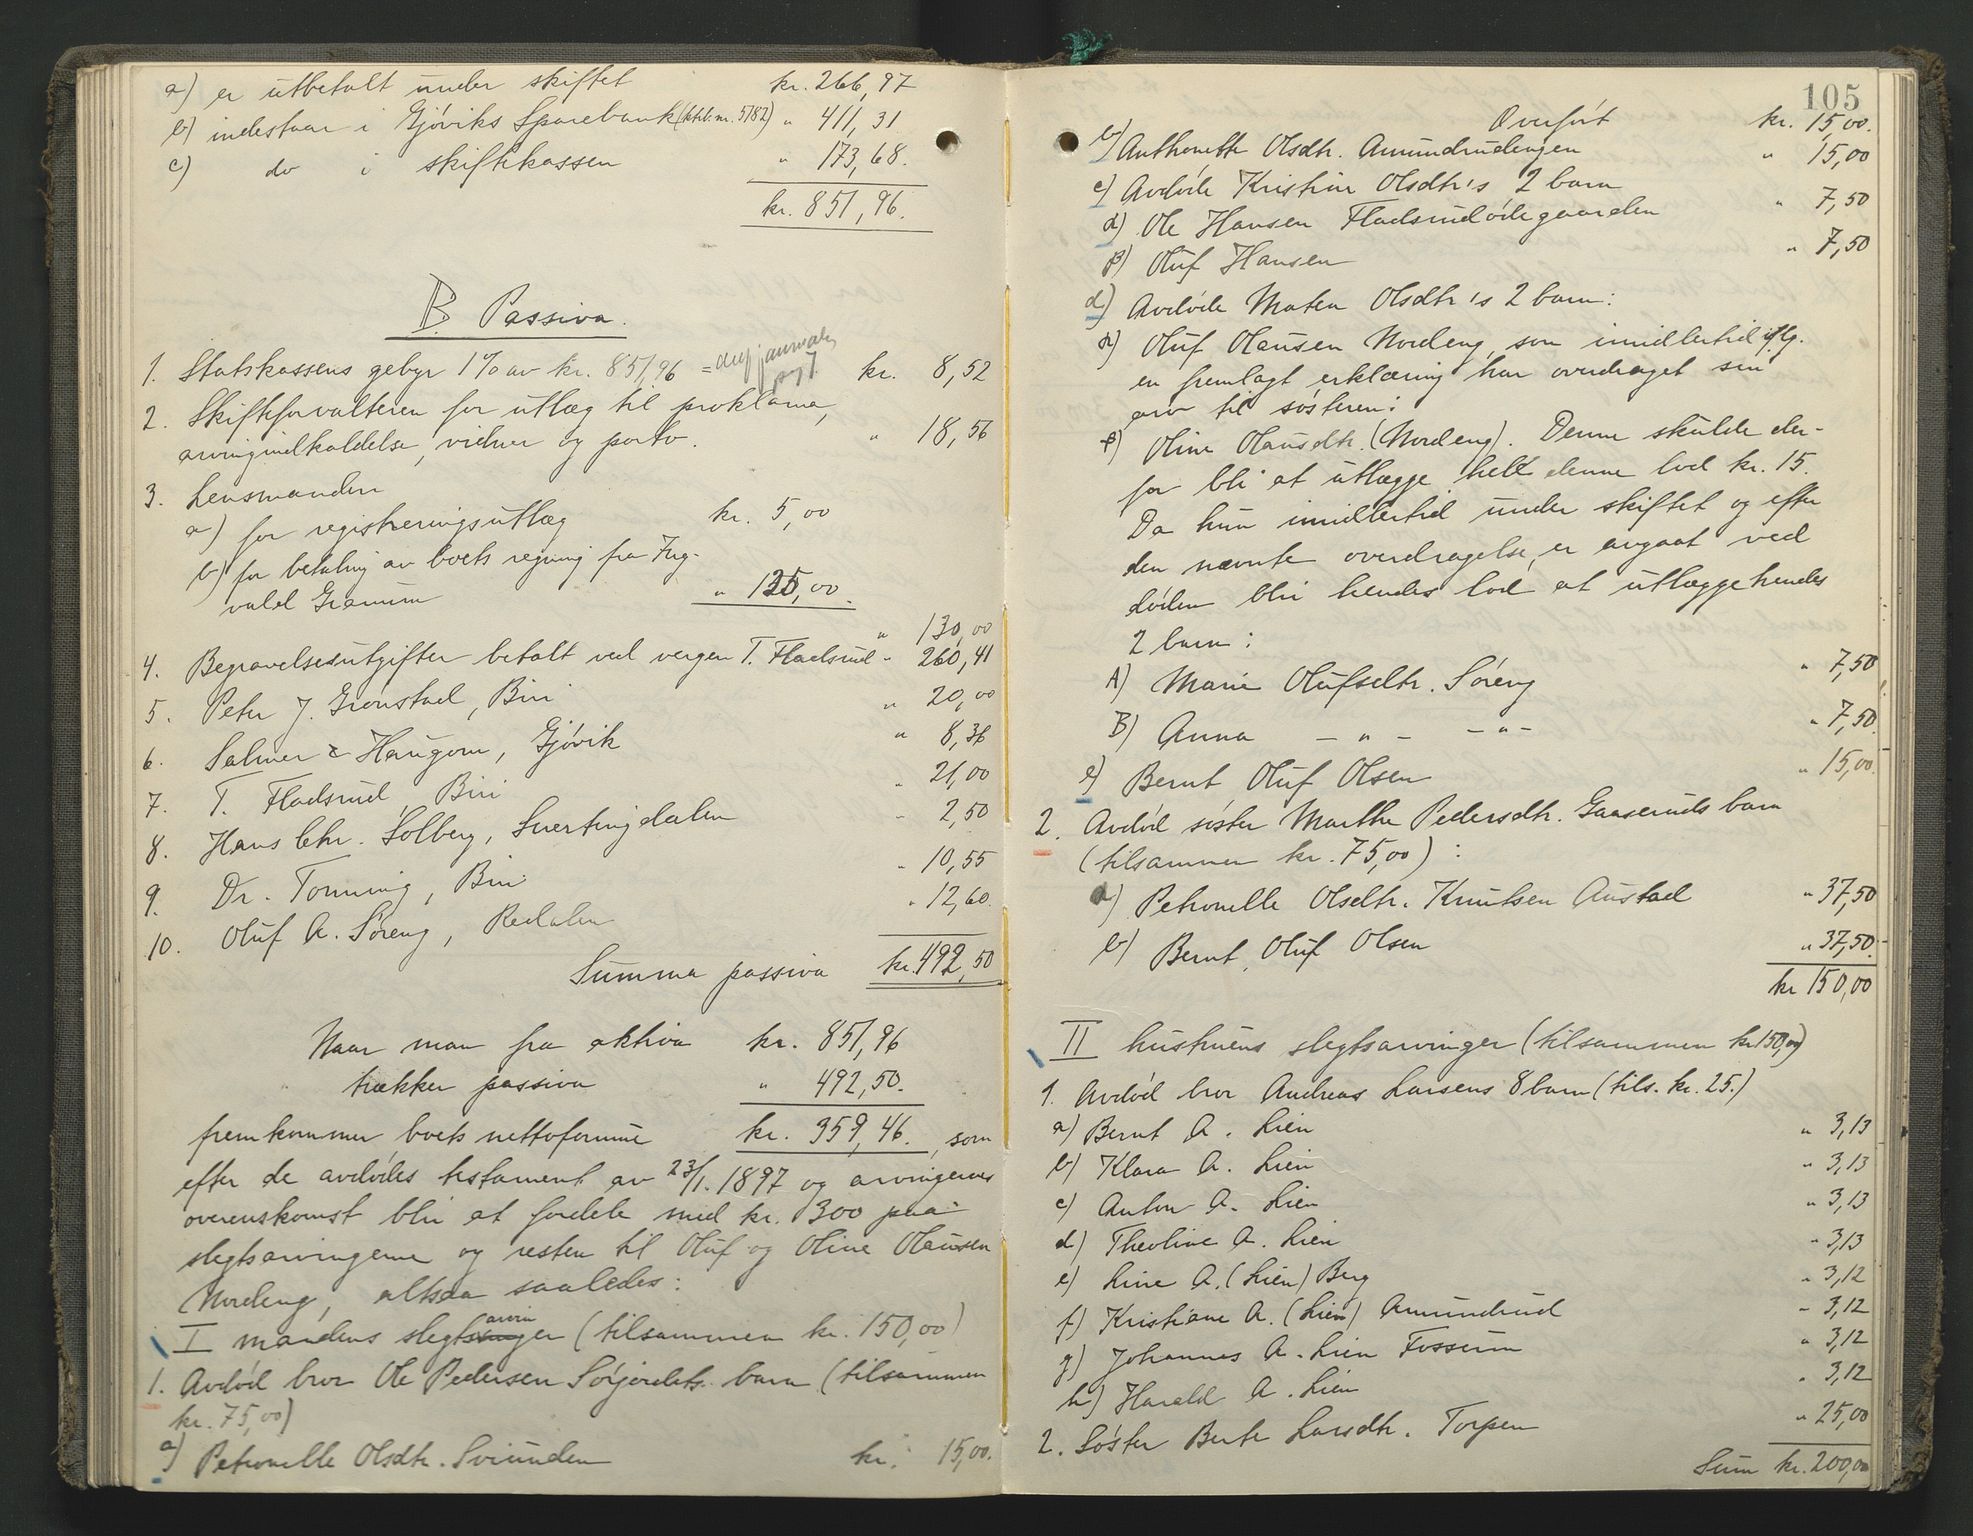 a) er utbetalt under skiftet kr. 266,97
b) indestaar i Gjøviks Sparebank (ktrb. nr. 5182) " 411,31
c) do i skiftekassen " 173,68.
kr. 851,96.
B Passiva.
1. Statskassens gebyr 1% av kr. 851,96 = kr. 8,52
2. Skifteforvalteren for utlæg til proklama,
arvingindkaldelse, vidner og porto. " 18,56
3. Lensmanden
a) for registreringsutlæg kr. 5,00
b) for betaling av boets regning fra Ing-
vald Granum " 125,00.
" 130,00
4. Begravelsesutgifter betalt ved vergen T. Fladsrud " 260,41
5. Peter J. Grønstad, Biri " 20,00
6. Salmer & Haugom, Gjøvik " 8,36
7. T. Fladsrud Biri " 21,00
8. Hans Chr. Solberg, Snertingdalen " 2,50
9. Dr. Tonning, Biri " 10,55
10. Oluf A. Søreng, Redalen " 12,60.
Summa passiva kr. 492,50
Naar man fra aktiva kr. 851,96
trækker passiva " 492,50.
fremkommer boets nettoformue kr. 359,46., som
efter de avdødes testament av 23/1. 1897 og arvingernes
overenskomst blir at fordele med kr. 300 paa
slegtsarvingerne og resten til Oluf og Oline Olausen
Nordeng, altsaa saaledes:
arvin
I mandens slegtsanger (tilsammen kr. 150,00)
1. Avdød bror Ole Pedersen Sørjordets barn (tilsammen
kr. 75,00)
a) Petronelle Olsdtr. Sviunden kr. 15,00.
105
Overført kr. 15,00.
b) Anthonette Olsdtr. Amundrudengen " 15,00
c) Avdøde Kristine Olsdtr's 2 barn
α) Ole Hansen Fladsrudødegaarden " 7,50
β) Oluf Hansen " 7,50
d) Avdøde Mathea Olsdtr's 2 barn:
α) Oluf Olausen Nordeng, som imidlertid iflg.
en fremlagt erklæring har overdraget sin
arv til søsteren:
β) Oline Olausdtr. (Nordeng). Denne skulde der-
for bli at utlægge hele denne lod kr. 15.
Da hun imidlertid under skiftet og efter
den nævnte overdragelse, er avgaat ved
døden blir hendes lod at utlægge hendes
2 barn:
A) Marie Olufsdtr. Søreng " 7,50
B) Anna - " - - " - " 7,50
e) Bernt Oluf Olsen " 15,00.
2. Avdød søster Marthe Pedersdtr. Gaaseruds barn
(tilsammen kr. 75,00):
a) Petronelle Olsdtr. Knutsen Austad " 37,50
b) Bernt Oluf Olsen " 37,50.
kr 150,00
II hustruens slegtsarvinger (tilsammen kr 150,00)
1. Avdød bror Andreas Larsens 8 barn (tils. kr. 25.)
a) Bernt A. Lien " 3,13
b) Klara A. Lien " 3,13
c) Anton A. Lien " 3,13
d) Theoline A. Lien " 3,13
e) Line A. (Lien) Berg " 3,12
f) Kristiane A. (Lien) Amundrud " 3,12
g) Johannes A. Lien Fossum " 3,12
h) Harald A. Lien " 3,12
2. Søster Berte Larsdtr. Torpen " 25,00
Sum kr. 200,00